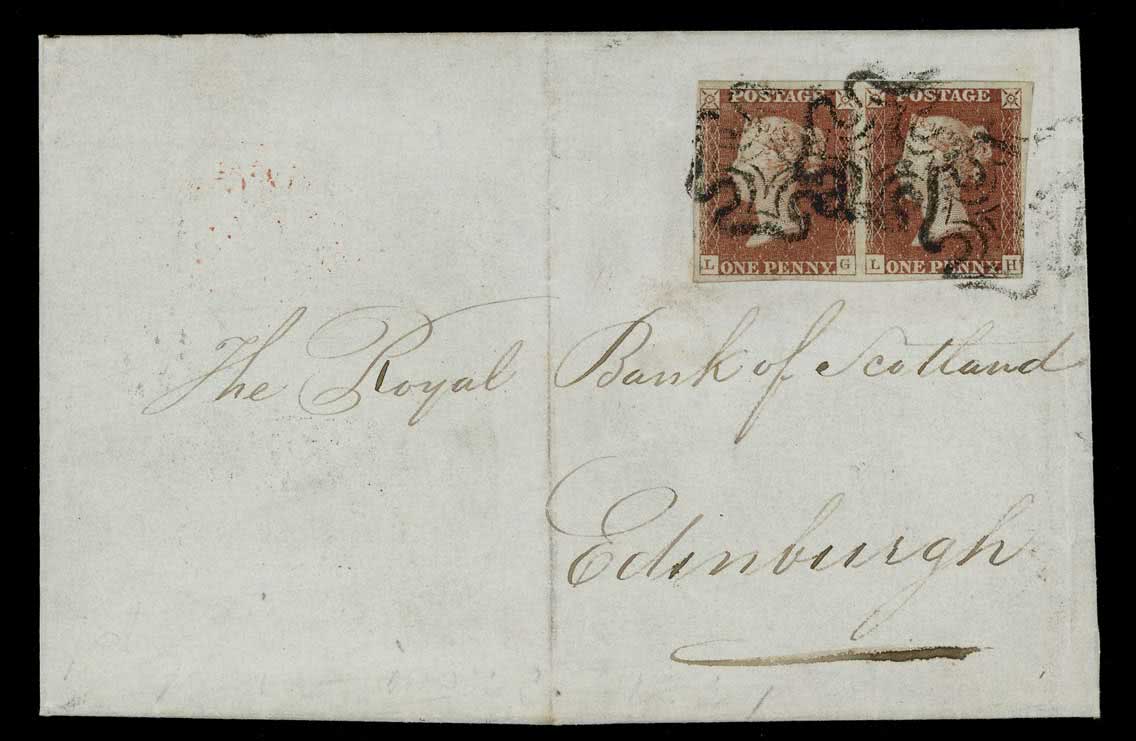 POSTAGE POSTAGE
L ONE PENNY. G L ONE PENNY. H
The Royal Bank of Scotland
Edinburgh